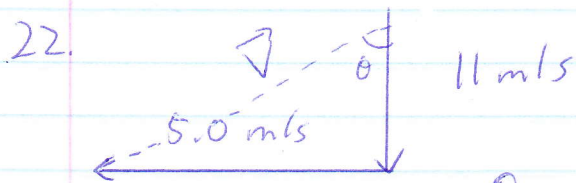 22.
V
θ
11 m/s
5.0 m/s